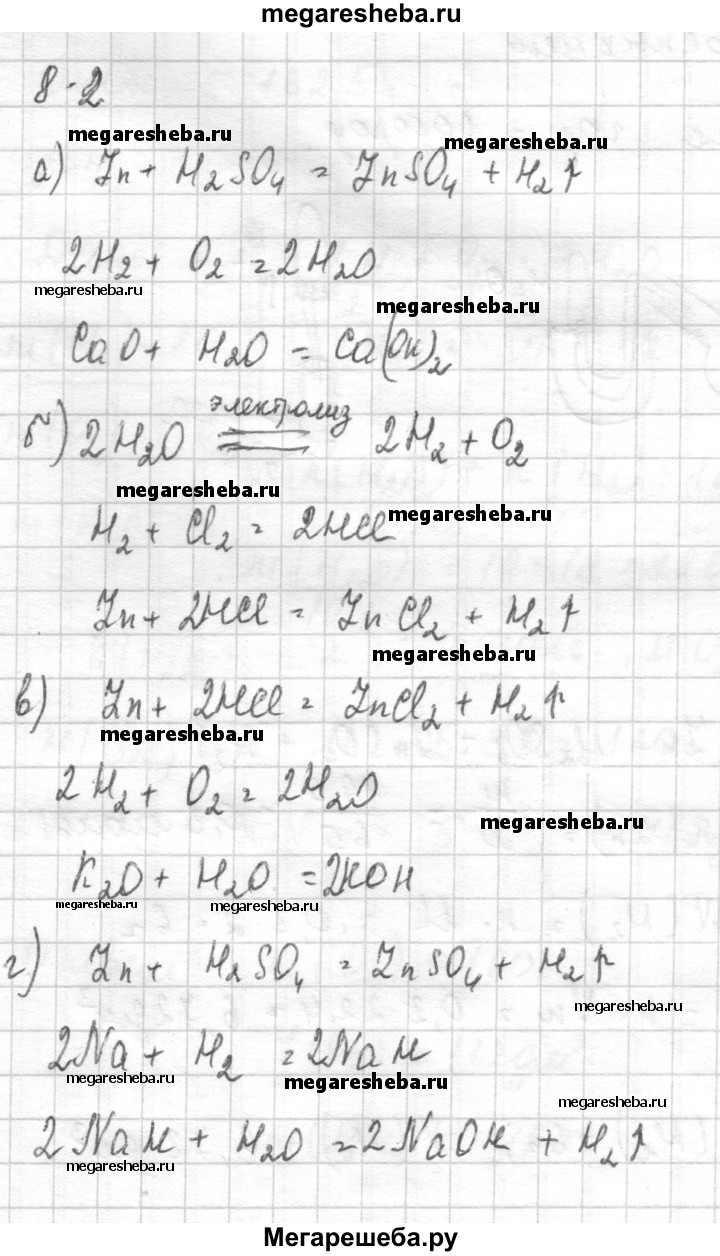 megaresheba.ru
8-2
megaresheba.ru
megaresheba.ru
а) Zn + H2SO4 = ZnSO4 + H2↑
2H2 + O2 = 2H2O
megaresheba.ru
megaresheba.ru
CaO + H2O = Ca(OH)2
б) 2H2O электролиз == 2H2 + O2
megaresheba.ru
megaresheba.ru
H2 + Cl2 = 2HCl
Zn + 2HCl = ZnCl2 + H2↑
megaresheba.ru
в) Zn + 2HCl = ZnCl2 + H2↑
megaresheba.ru
2H2 + O2 = 2H2O
megaresheba.ru
K2O + H2O = 2KOH
megaresheba.ru
megaresheba.ru
г) Zn + H2SO4 = ZnSO4 + H2↑
megaresheba.ru
2Na + H2 = 2NaH
megaresheba.ru
megaresheba.ru
megaresheba.ru
2NaH + H2O = 2NaOH + H2↑
megaresheba.ru
Мегарешеба.ру